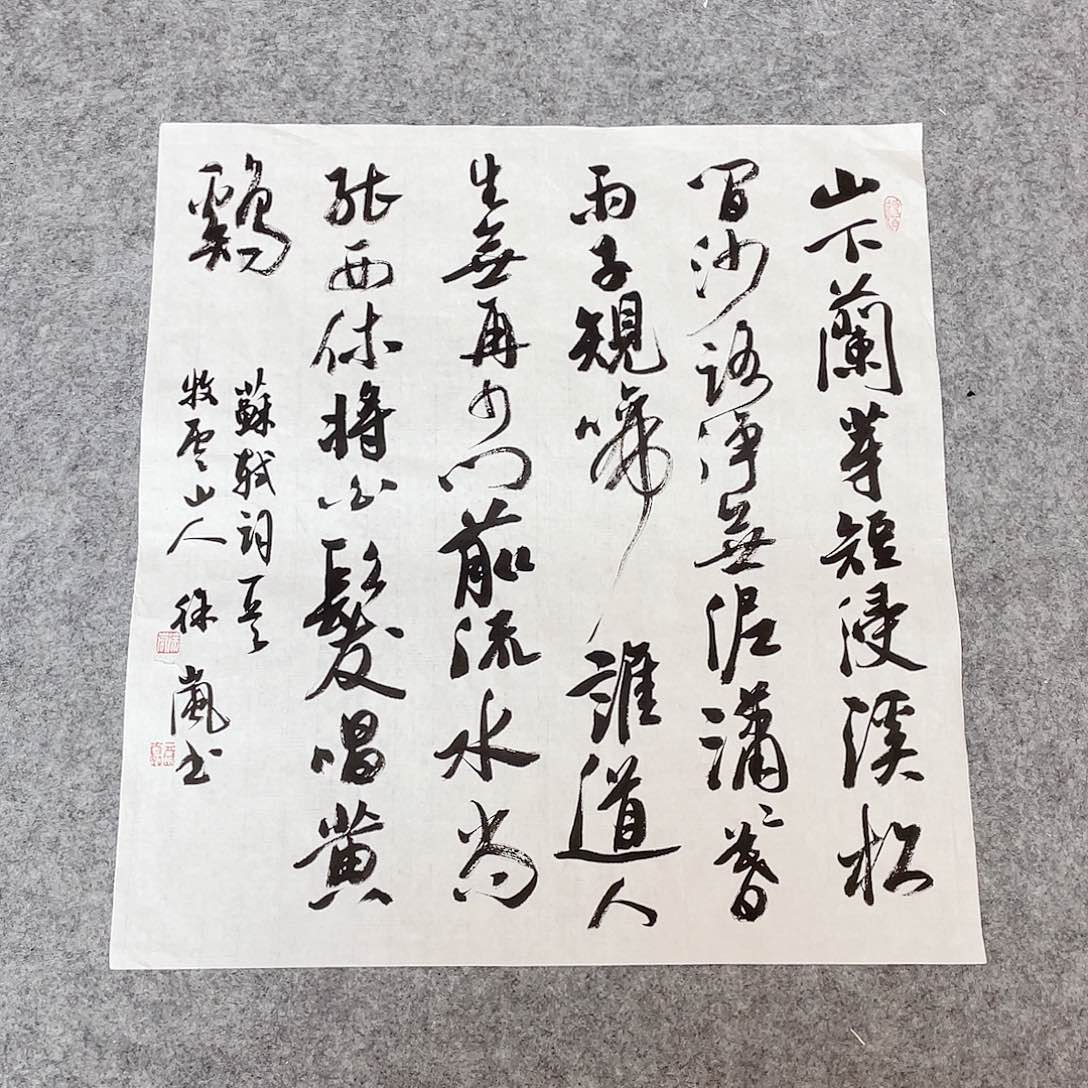 山下蘭芽短浸溪松
間沙路淨無泥瀟〻暮
雨子規啼誰道人
生無再少門前流水尚
能西休將白髮唱黃
鷄
蘇軾詞一首
牧雲山人徐嵐書